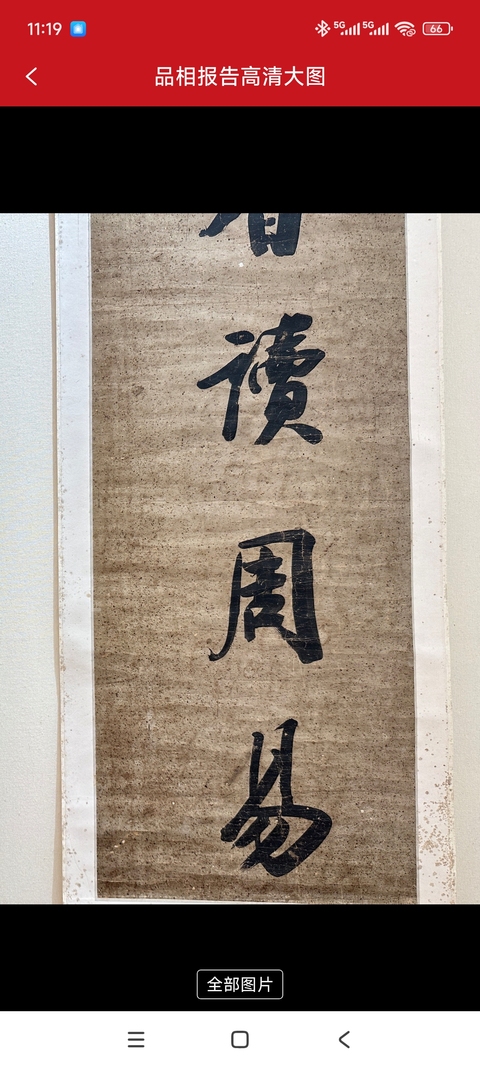 11:19
5G
5G
66
品相报告高清大图
讀
周
易
全部图片